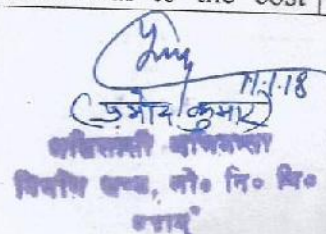 to the cost
11.1.18
(प्रमोद कुमार)
अधिशासी अभियन्ता
निर्माण खण्ड, लो० नि० वि०
बदायूं